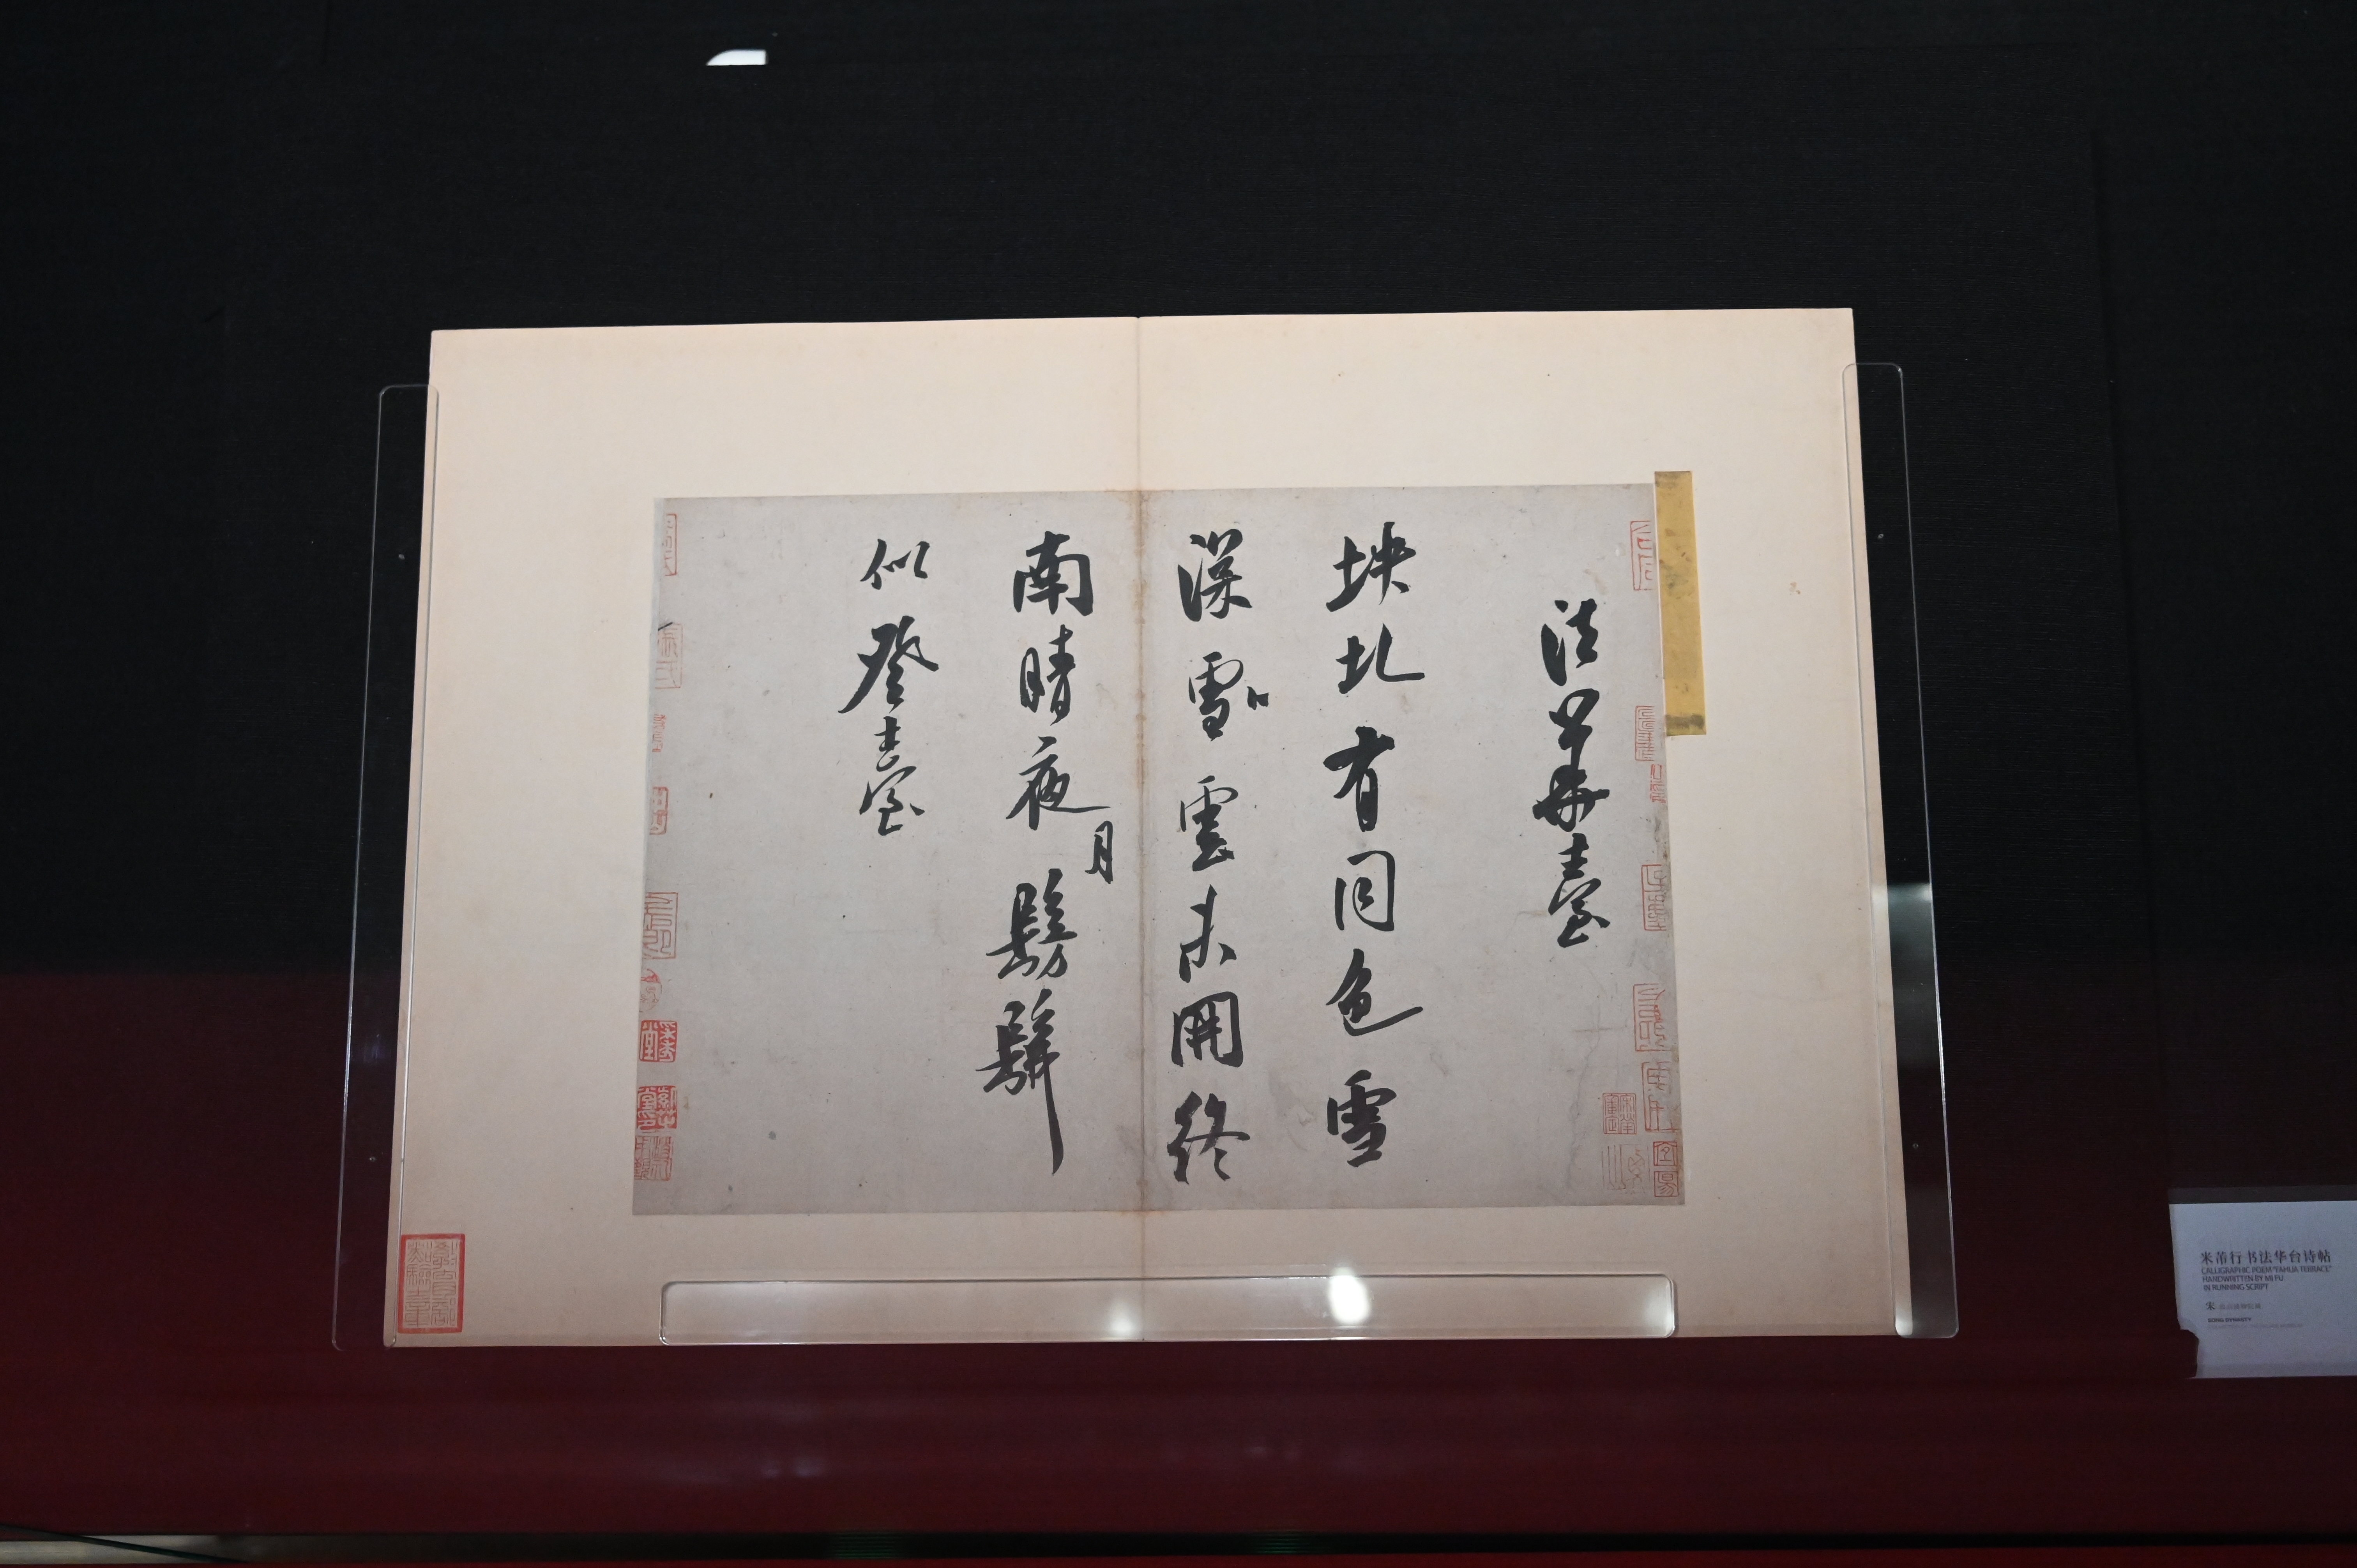 法華臺
坱圠有同色雪
深雪雲未開終
南晴夜月髣髴
似登臺
米芾行书法华台诗帖
CALLIGRAPHIC POEM "FAHUA TERRACE"
HANDWRITTEN BY MI FU
IN RUNNING SCRIPT
宋
SONG DYNASTY